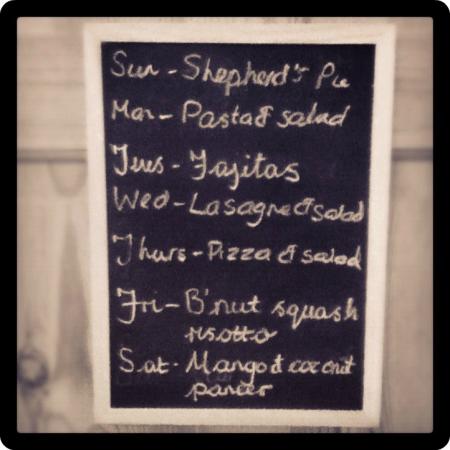 Sun - Shepherd's Pie
Mon - Pasta & salad
Tues - Fajitas
Wed - Lasagne & salad
Thurs - Pizza & salad
Fri - B'nut squash
risotto
Sat - Mango & coconut
paneer